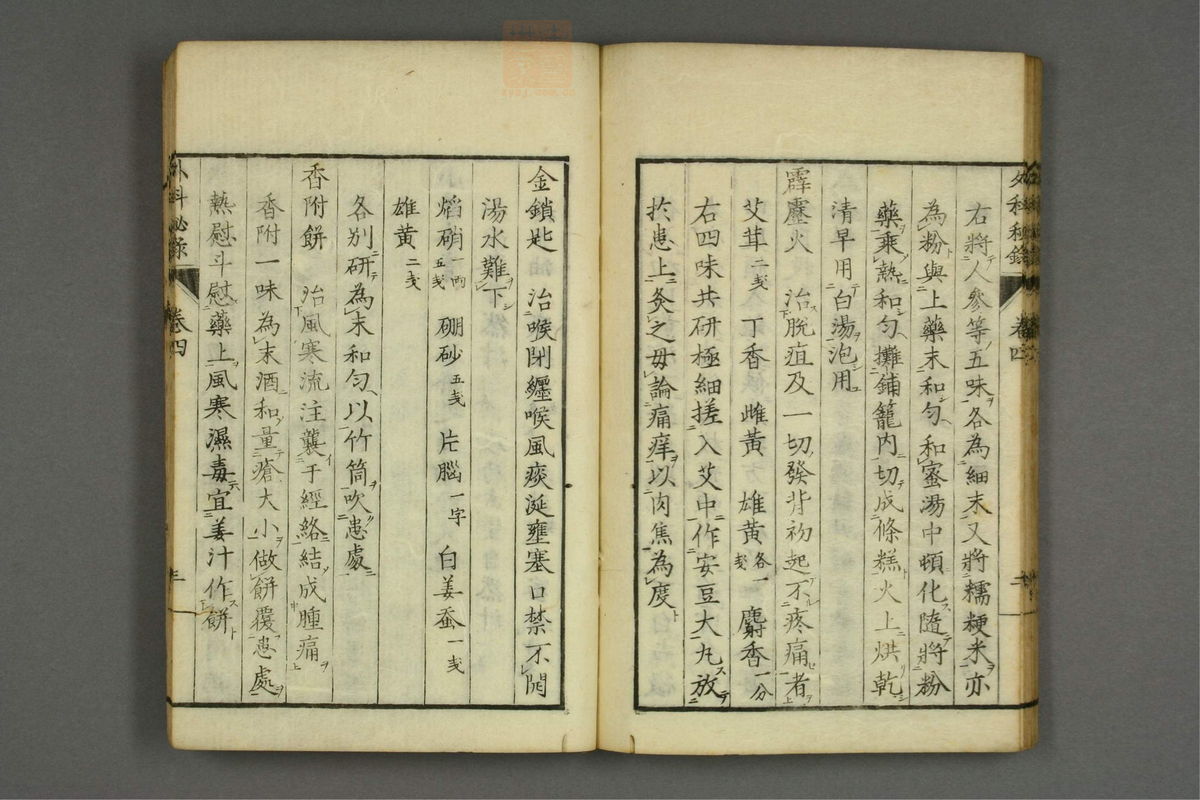 右將人參等五味各為細末又將糯粳米亦
為粉與上藥末和勻和蜜湯中頓化隨將粉
藥乘熱和勻攤鋪籠內切成條糕火上烘乾
清早用白湯泡用
霹靂火 治脫疽及一切發背初起不疼痛者
艾茸二戔 丁香 雌黃 雄黃各一戔 麝香一分
右四味共研極細搓入艾中作安豆大丸放
於患上灸之毋論痛痒以肉焦為度
外科秘錄 卷四
金鎖匙 治喉閉纏喉風痰涎壅塞口禁不開
湯水難下
焰硝一兩五戔 硼砂五戔 片腦一字 白姜蚕一戔
雄黃二戔
各別研為末和勻以竹筒吹患處
香附餅 治風寒流注襲于經絡結成腫痛
香附一味為末酒和量瘡大小做餅覆患處
熱慰斗慰藥上風寒濕毒宜姜汁作餅
外科秘錄 卷四 三